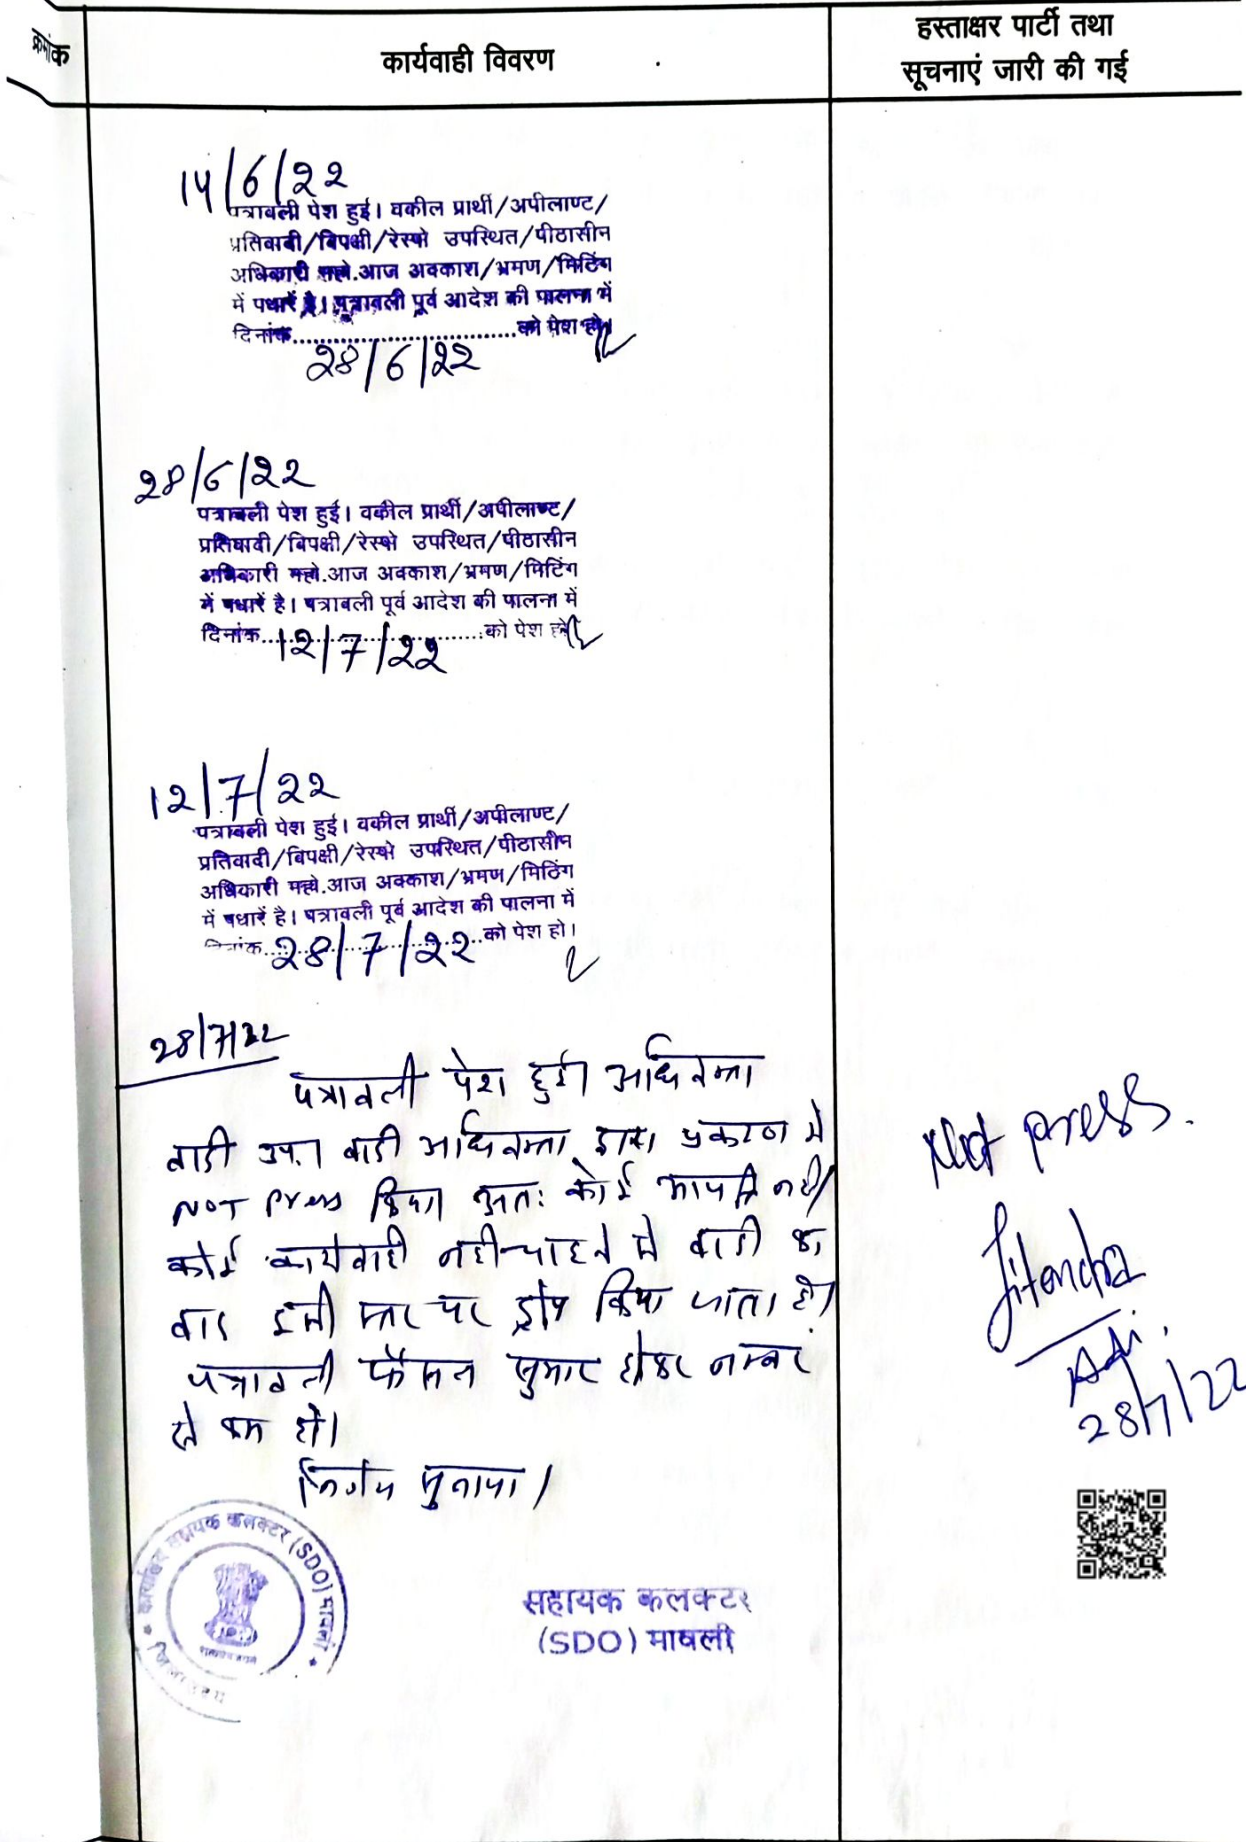 क्रमांक
कार्यवाही विवरण
हस्ताक्षर पार्टी तथा
सूचनाएं जारी की गई
14/6/22
पत्रावली पेश हुई। वकील प्रार्थी/अपीलाण्ट/
प्रतिवादी/विपक्षी/रेस्पो उपस्थित/पीठासीन
अधिकारी महो.आज अवकाश/भ्रमण/मिटिंग
में पधारें है। पत्रावली पूर्व आदेश की पालना में
दिनांक..............................को पेश हो।
28/6/22
28/6/22
पत्रावली पेश हुई। वकील प्रार्थी/अपीलाण्ट/
प्रतिवादी/विपक्षी/रेस्पो उपस्थित/पीठासीन
अधिकारी महो.आज अवकाश/भ्रमण/मिटिंग
में पधारें है। पत्रावली पूर्व आदेश की पालना में
दिनांक..............................को पेश हो
12/7/22
12/7/22
पत्रावली पेश हुई। वकील प्रार्थी/अपीलाण्ट/
प्रतिवादी/विपक्षी/रेस्पो उपस्थित/पीठासीन
अधिकारी महो.आज अवकाश/भ्रमण/मिटिंग
में पधारें है। पत्रावली पूर्व आदेश की पालना में
दिनांक..28/7/22..को पेश हो।
28/7/22
पत्रावली पेश हुई। अधिवक्ता
वादी उप.। वादी अधिवक्ता द्वारा प्रकरण में
NOT Press किया अतः कोई आपत्ति नही
कोई कार्यवाही नही चाहने से वादी का
वाद इसी स्तर पर ड्रोप किया जाता है।
पत्रावली फैसल सुमार होकर नम्बर
से कम हो।
निर्णय सुनाया।
Not press.
Jitendra
Adv.
28/7/22
कार्यालय सहायक कलक्टर (SDO) मावली
सहायक कलक्टर
(SDO) मावली